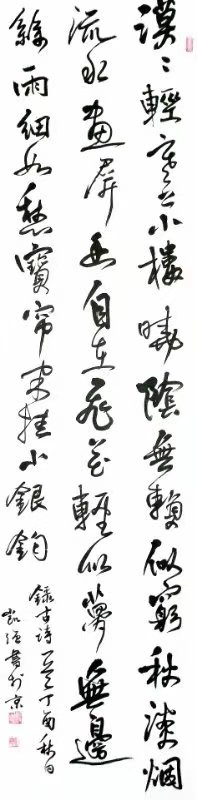 漠々輕寒上小樓曉陰無賴似窮秋淡烟
流水畫屏幽自在飛花輕似夢無邊
絲雨細如愁寶帘閑挂小銀鈎
錄古詩一首丁酉秋日
書於京